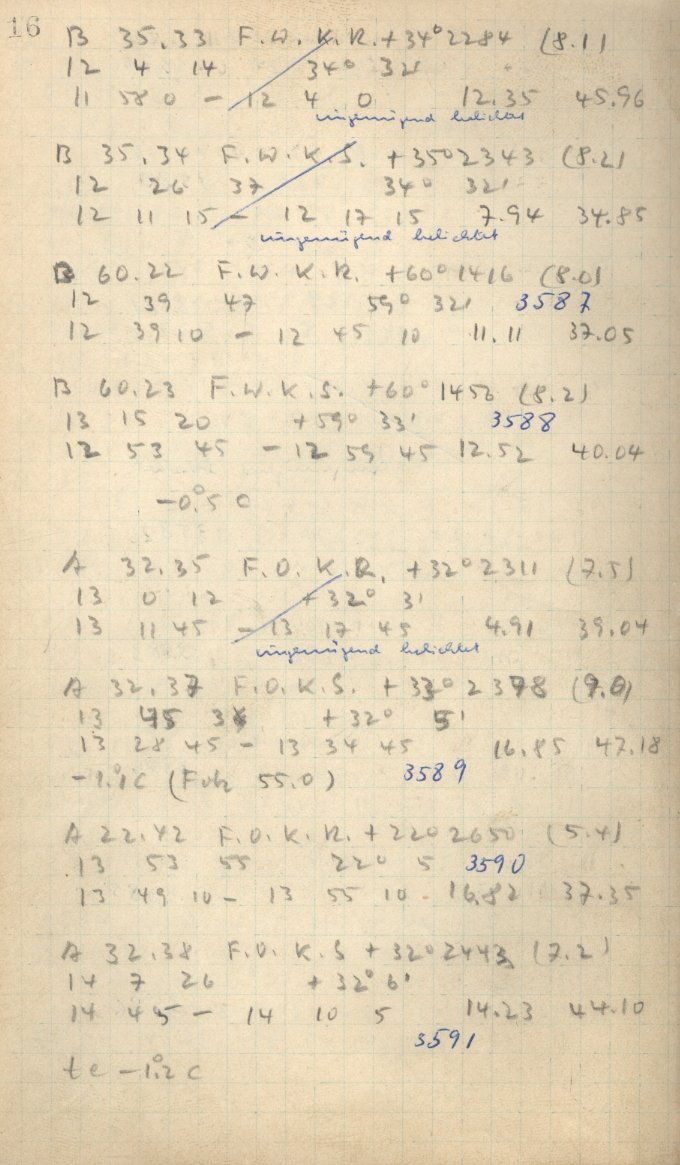 16
B 35.33 F.W. K.R. +34°2284 (8.1)
12 4 14 34° 32'
11 58 0 - 12 4 0 12.35 45.96
ungenügend belichtet
B 35.34 F.W. K.S. +35°2343 (8.2)
12 26 37 34° 32'
12 11 15 - 12 17 15 7.94 34.85
ungenügend belichtet
B 60.22 F.W. K.R. +60°1416 (8.0)
12 39 47 59° 32' 3587
12 39 10 - 12 45 10 11.11 37.05
B 60.23 F.W.K.S. +60°1456 (8.2)
13 15 20 +59° 33' 3588
12 53 45 - 12 59 45 12.52 40.04
-0°.5 C
A 32.35 F.O. K.R. +32°2311 (7.5)
13 0 12 +32° 3'
13 11 45 - 13 17 45 4.91 39.04
ungenügend belichtet
A 32.37 F.O.K.S. +33°2378 (9.0)
13 45 +32° 5'
13 28 45 - 13 34 45 16.85 47.18
-1°.1C (Fok 55.0) 3589
A 22.42 F.O.K.R. +22°2650 (5.4)
13 53 55 22° 5 3590
13 49 10 - 13 55 10 16.82 37.35
A 32.38 F.O. K.S +32°2443 (7.2)
14 7 26 +32° 6'
14 4 5 - 14 10 5 14.23 44.10
3591
te -1°.2 C